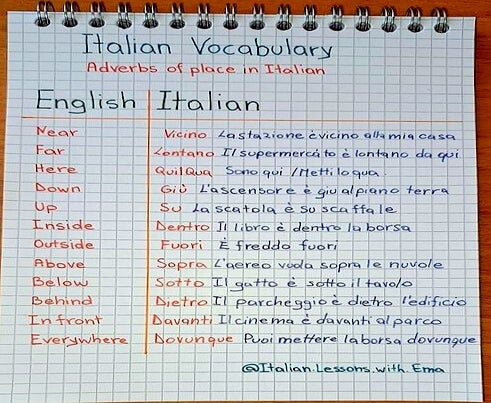 Italian Vocabulary
Adverbs of place in Italian
English Italian
Near Vicino La stazione è vicino alla mia casa
Far Lontano Il supermercato è lontano da qui
Here Qui/Qua Sono qui / Metti lo qua
Down Giù L'ascensore è giu al piano terra
Up Su La scatola è su scaffale
Inside Dentro Il libro è dentro la borsa
Outside Fuori È freddo fuori
Above Sopra L'aereo vola sopra le nuvole
Below Sotto Il gatto è sotto il tavolo
Behind Dietro Il parcheggio è dietro l'edificio
In front Davanti Il cinema è davanti al parco
Everywhere Dovunque Puoi mettere la borsa dovunque
@Italian.Lessons.with.Ema